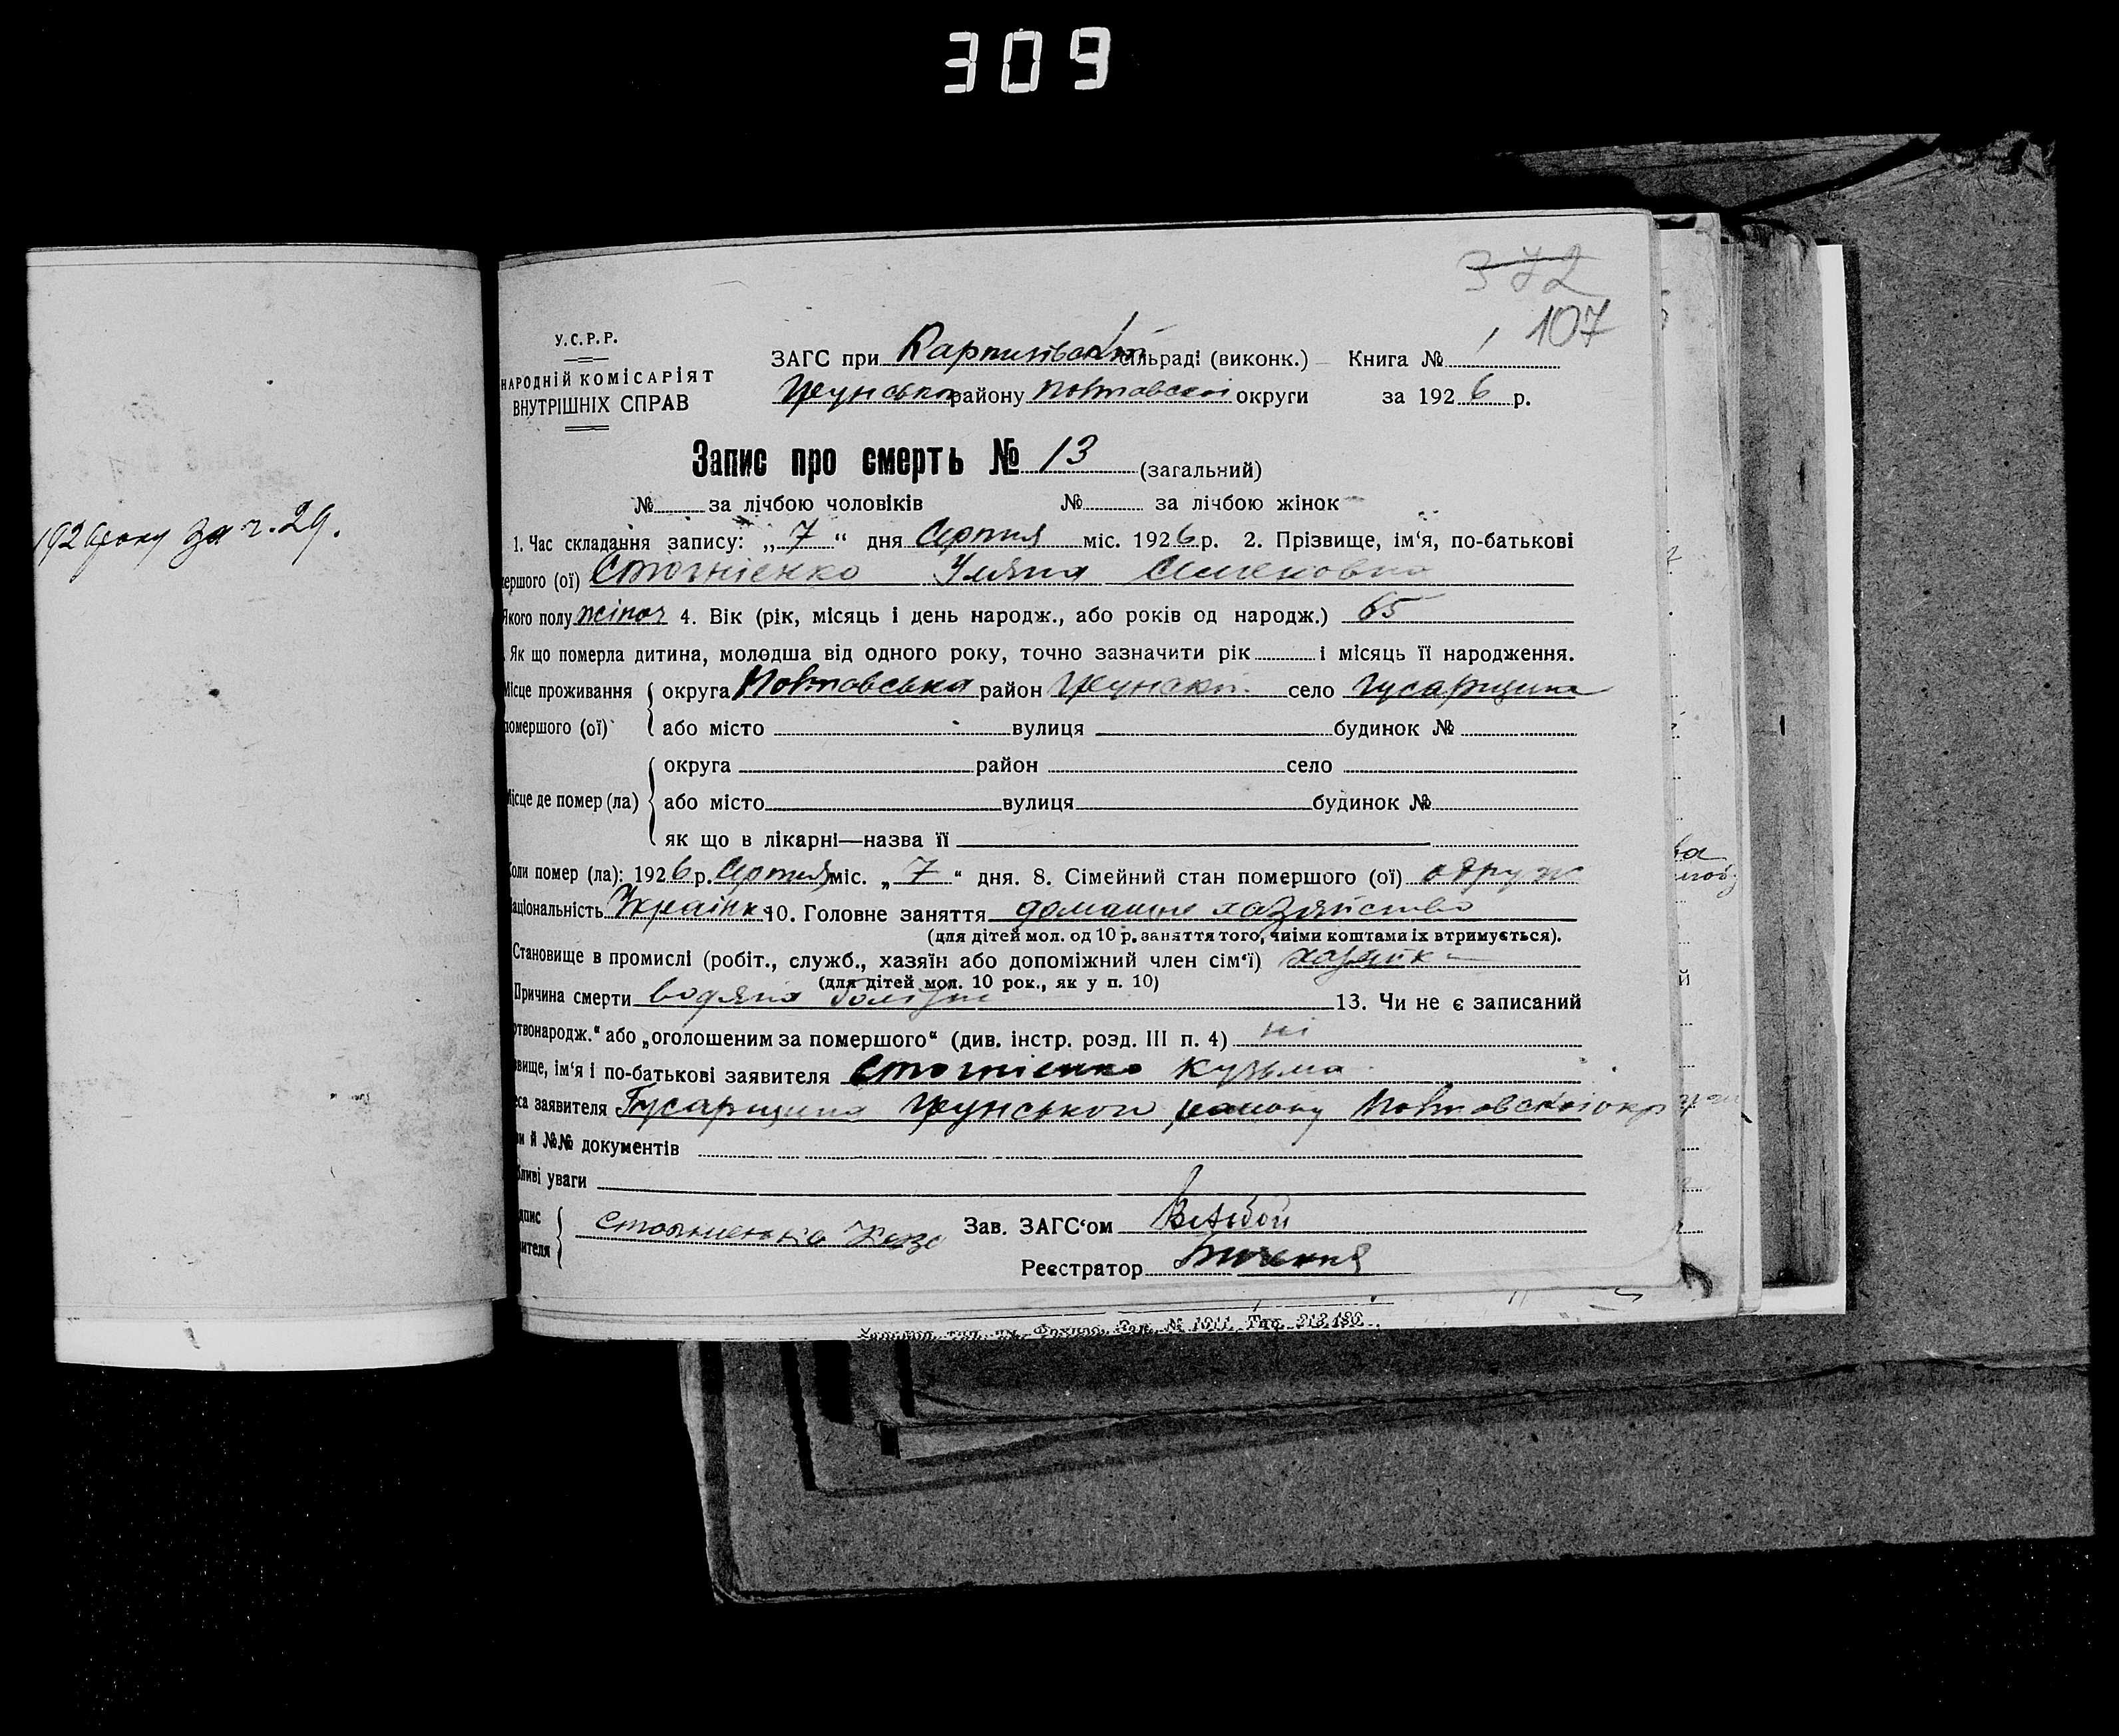 309
372
107
1926 року за ч. 29.
У.С.Р.Р.
НАРОДНІЙ КОМІСАРІЯТ
ВНУТРІШНІХ СПРАВ
ЗАГС при сільраді (виконк.) Книга №
району Полтавскоі округи за 1926 р.
Запис про смерть № 13 (загальний)
№ за лічбою чоловіків № за лічбою жінок
1. Час складання запису: „7“ дня Серпня міс. 1926 р. 2. Прізвище, ім‘я, по-батькові
мершого (ої) Стогнієнко Уляна Семеновна
Якого полу жіноч 4. Вік (рік, місяць і день народж., або років од народж.) 65
Як що померла дитина, молодша від одного року, точно зазначити рік і місяць її народження.
Місце проживання округа Полтавська район село Гусарщина
помершого (ої) або місто вулиця будинок №
округа район село
Місце де помер (ла) або місто вулиця будинок №
як що в лікарні—назва її
Коли помер (ла): 1926 р. Серпня міс. „7“ дня. 8. Сімейний стан помершого (ої) одруж
аціональність Украінка 10. Головне заняття домашнє хазяйство
(для дітей мол. од 10 р. заняття того, чиїми коштами їх втримується).
Становище в промислі (робіт., служб., хазяїн або допоміжний член сім‘ї) хазяйка
(для дітей мол. 10 рок., як у п. 10)
Причина смерти водяна 13. Чи не є записаний
ртвонародж.“ або „оголошеним за помершого“ (див. інстр. розд. III п. 4) ні
звище, ім‘я і по-батькові заявителя Стогнієнко Кузьма
еса заявителя Гусарщина району Полтавскоі окр
ви й №№ документів
бливі уваги
дпис
вителя
Зав. ЗАГС‘ом
Реєстратор